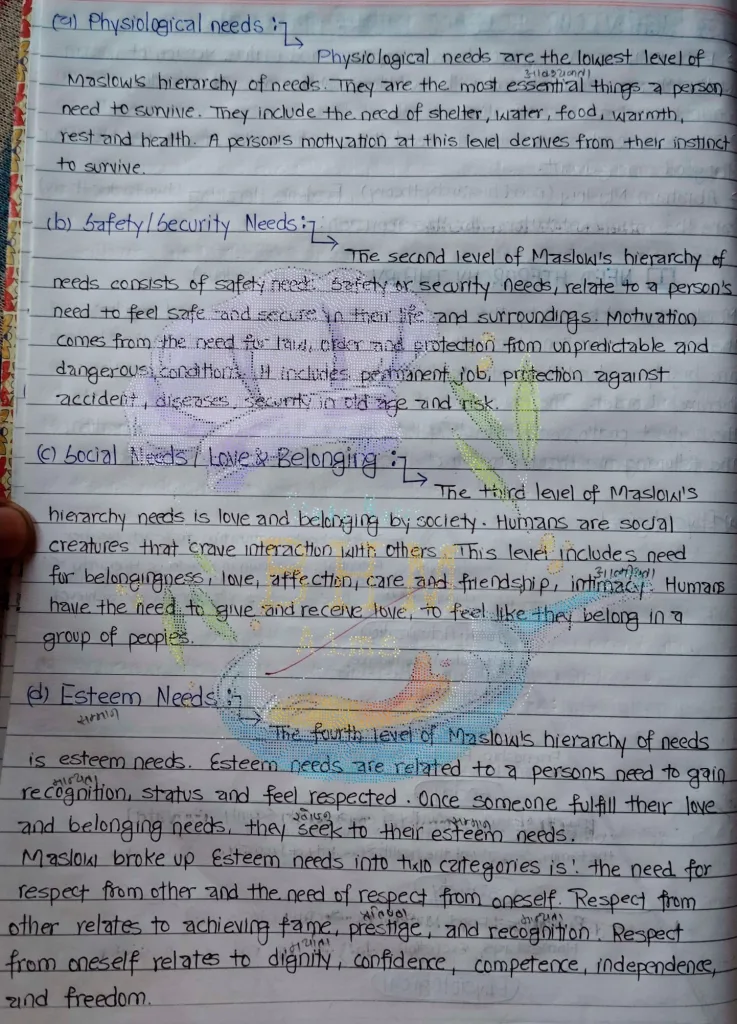 (a) Physiological needs :
Physiological needs are the lowest level of
Maslow's hierarchy of needs. They are the most essential things a person
need to survive. They include the need of shelter, water, food, warmth,
rest and health. A person's motivation at this level derives from their instinct
to survive.
(b) Safety/Security Needs :
The second level of Maslow's hierarchy of
needs consists of safety need. Safety or security needs, relate to a person's
need to feel safe and secure in their life and surroundings. Motivation
comes from the need for law, order and protection from unpredictable and
dangerous conditions. It includes permanent job, protection against
accident, diseases, security in old age and risk.
(c) Social Needs / Love & Belonging :
The third level of Maslow's
hierarchy needs is love and belonging by society. Humans are social
creatures that crave interaction with others. This level includes need
for belongingness, love, affection, care and friendship, intimacy. Humans
have the need to give and receive love, to feel like they belong in a
group of peoples.
(d) Esteem Needs :
सम्मान
The fourth level of Maslow's hierarchy of needs
is esteem needs. Esteem needs are related to a person's need to gain
recognition, status and feel respected. Once someone fulfill their love
and belonging needs, they seek to their esteem needs.
Maslow broke up Esteem needs into two categories is : the need for
respect from other and the need of respect from oneself. Respect from
other relates to achieving fame, prestige, and recognition. Respect
from oneself relates to dignity, confidence, competence, independence,
and freedom.